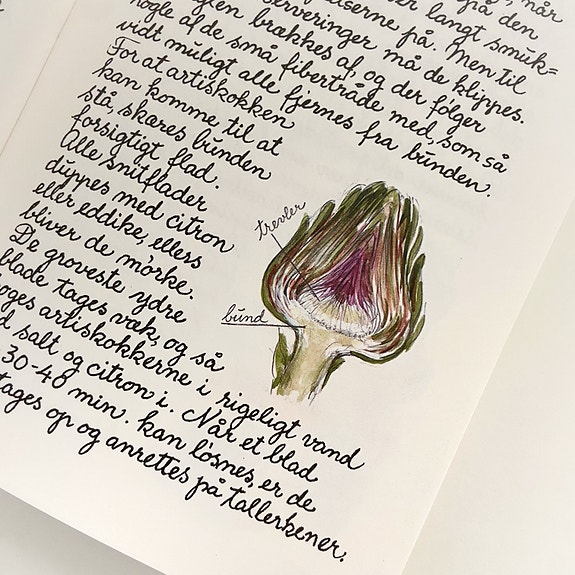 når
på den
serveringer må de klippes.
brækkes af, og der følger
nogle af de små fibertråde med, som så
vidt muligt alle fjernes fra bunden.
For at artiskokken
kan komme til at
stå, skæres bunden
forsigtigt flad.
Alle snitflader
duppes med citron
eller eddike, ellers
bliver de mørke.
De groveste ydre
blade tages væk, og så
koges artiskokkerne i rigeligt vand
salt og citron i. Når et blad
30-40 min. kan løsnes, er de
tages op og anrettes på tallerkener.
trevler
bund